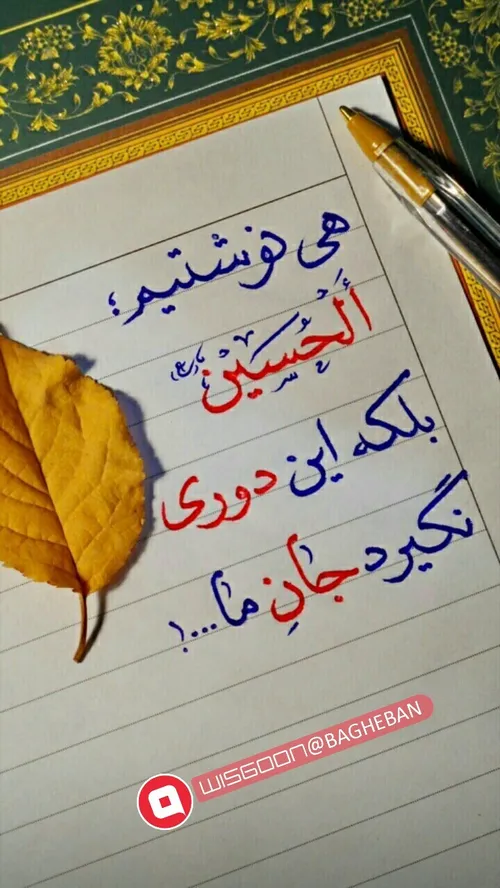 هی نوشتیم؛
أَلحُسَین ع
بلکه این دوری
نگیرد جانِ ما...!
WISGOON@BAGHEBAN